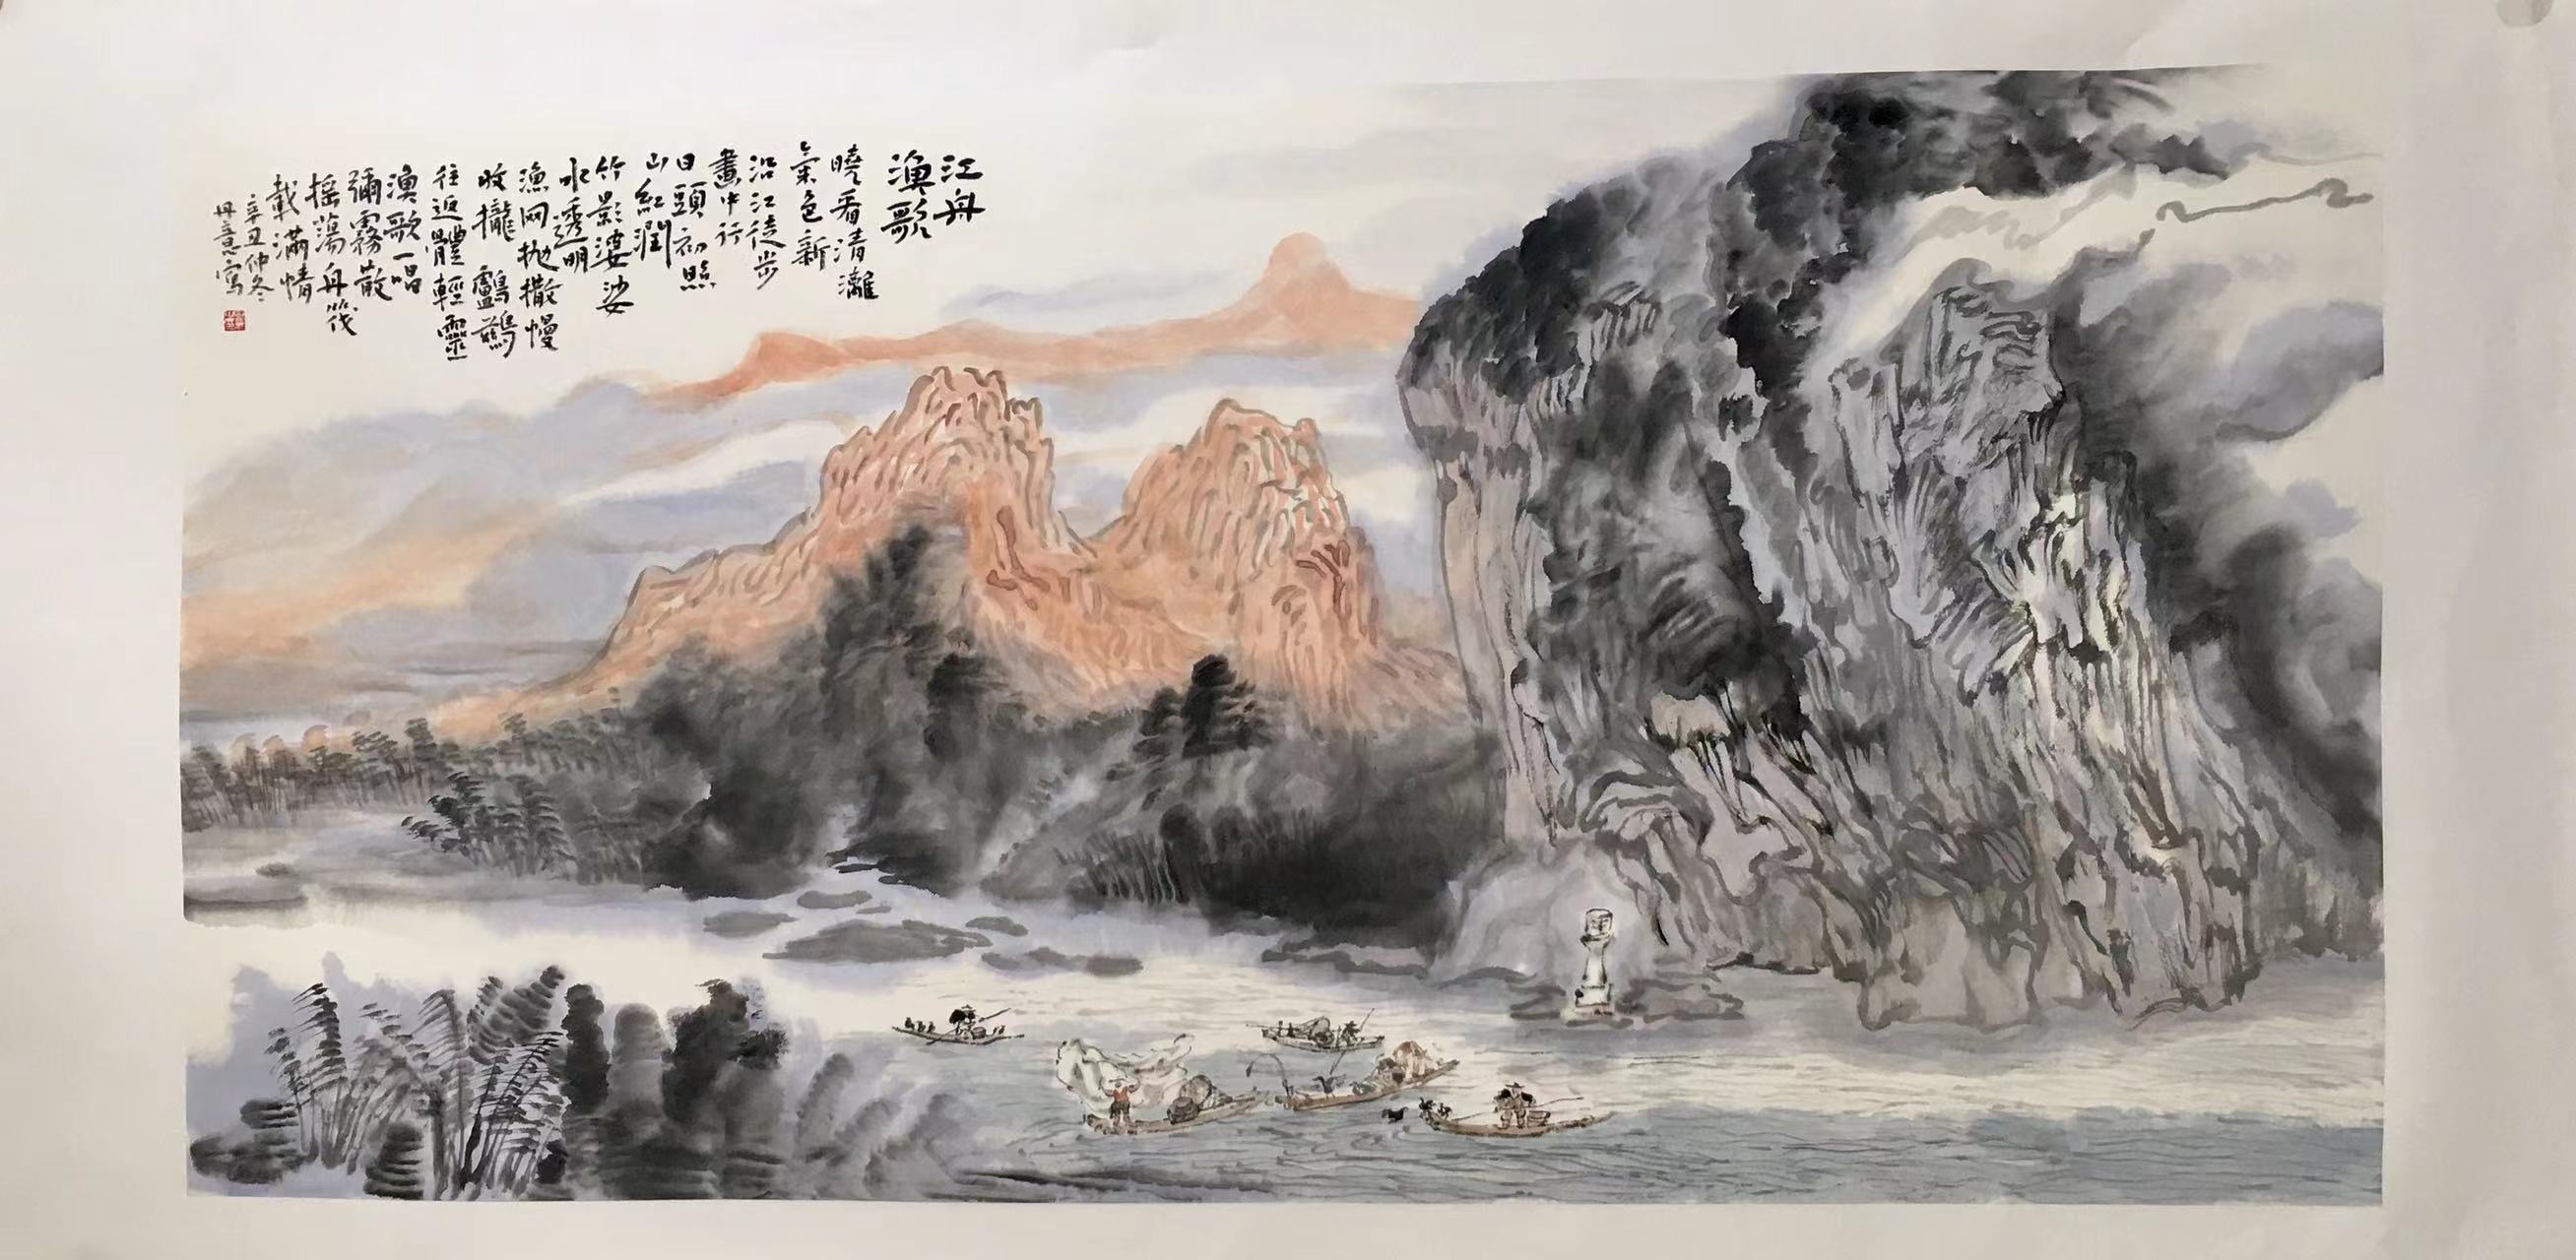 江舟
漁歌
曉看清灕
氣色新
沿江徒步
畫中行
日頭初照
山紅潤
竹影婆娑
水透明
漁网抛撒慢
收攏鸕鷀
往返體輕靈
漁歌一唱
彌霧散
摇蕩舟筏
載滿情
辛丑仲冬
丹意寫